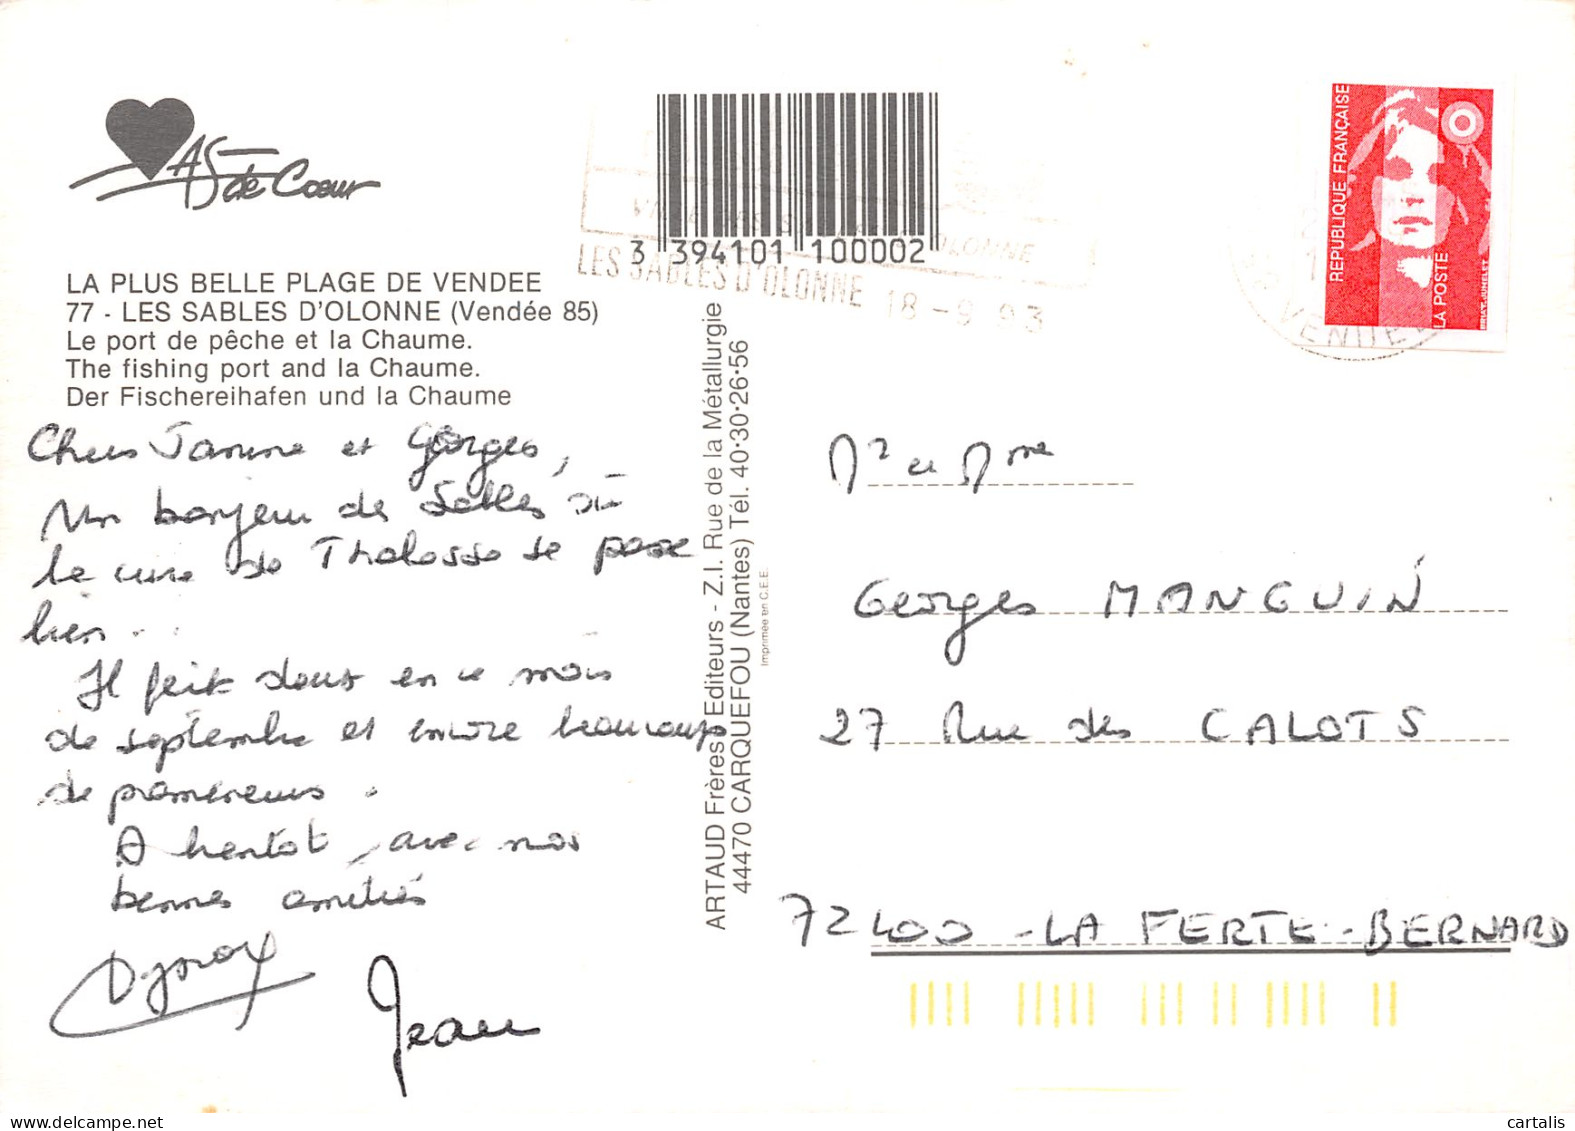 AS de Coeur
LA PLUS BELLE PLAGE DE VENDEE
77 - LES SABLES D'OLONNE (Vendée 85)
Le port de pêche et la Chaume.
The fishing port and la Chaume.
Der Fischereihafen und la Chaume
Chers Janine et Georges,
Un bonjour des Sables où
la cure de Thalasso se passe
bien..
Il fait doux en ce mois
de septembre et encore beaucoup
de promeneurs.
A bientot, avec nos
bonnes amitiés
Jean
3 394101 100002
OLONNE
LES SABLES D'OLONNE 18-9 93
ARTAUD Frères Editeurs - Z.I. Rue de la Métallurgie
44470 CARQUEFOU (Nantes) Tél. 40·30·26·56
Imprimée en C.E.E.
REPUBLIQUE FRANÇAISE
LA POSTE
VENDEE
Mr et Mme
Georges MANGUIN
27 Rue des CALOTS
72400 - LA FERTE-BERNARD
delcampe.net
cartalis